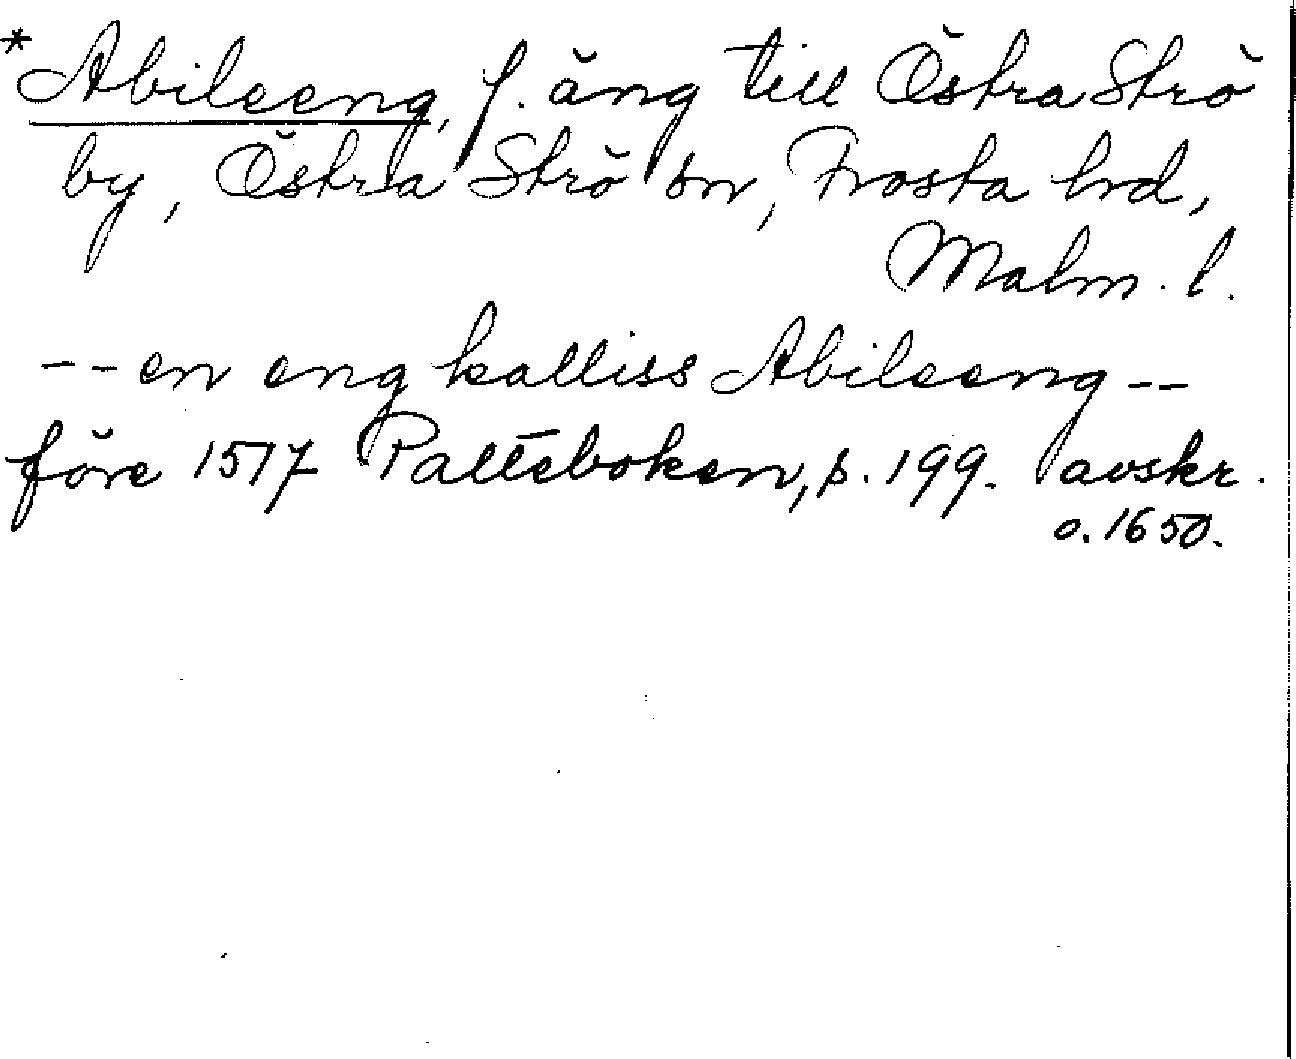 *Abileeng, f. äng till Östra Strö
by, Östra Strö sn, Frosta hd,
Malm. l.
-- en eng kalliss Abileeng --
före 1517 Palteboken, s. 199. avskr.
o. 1650.